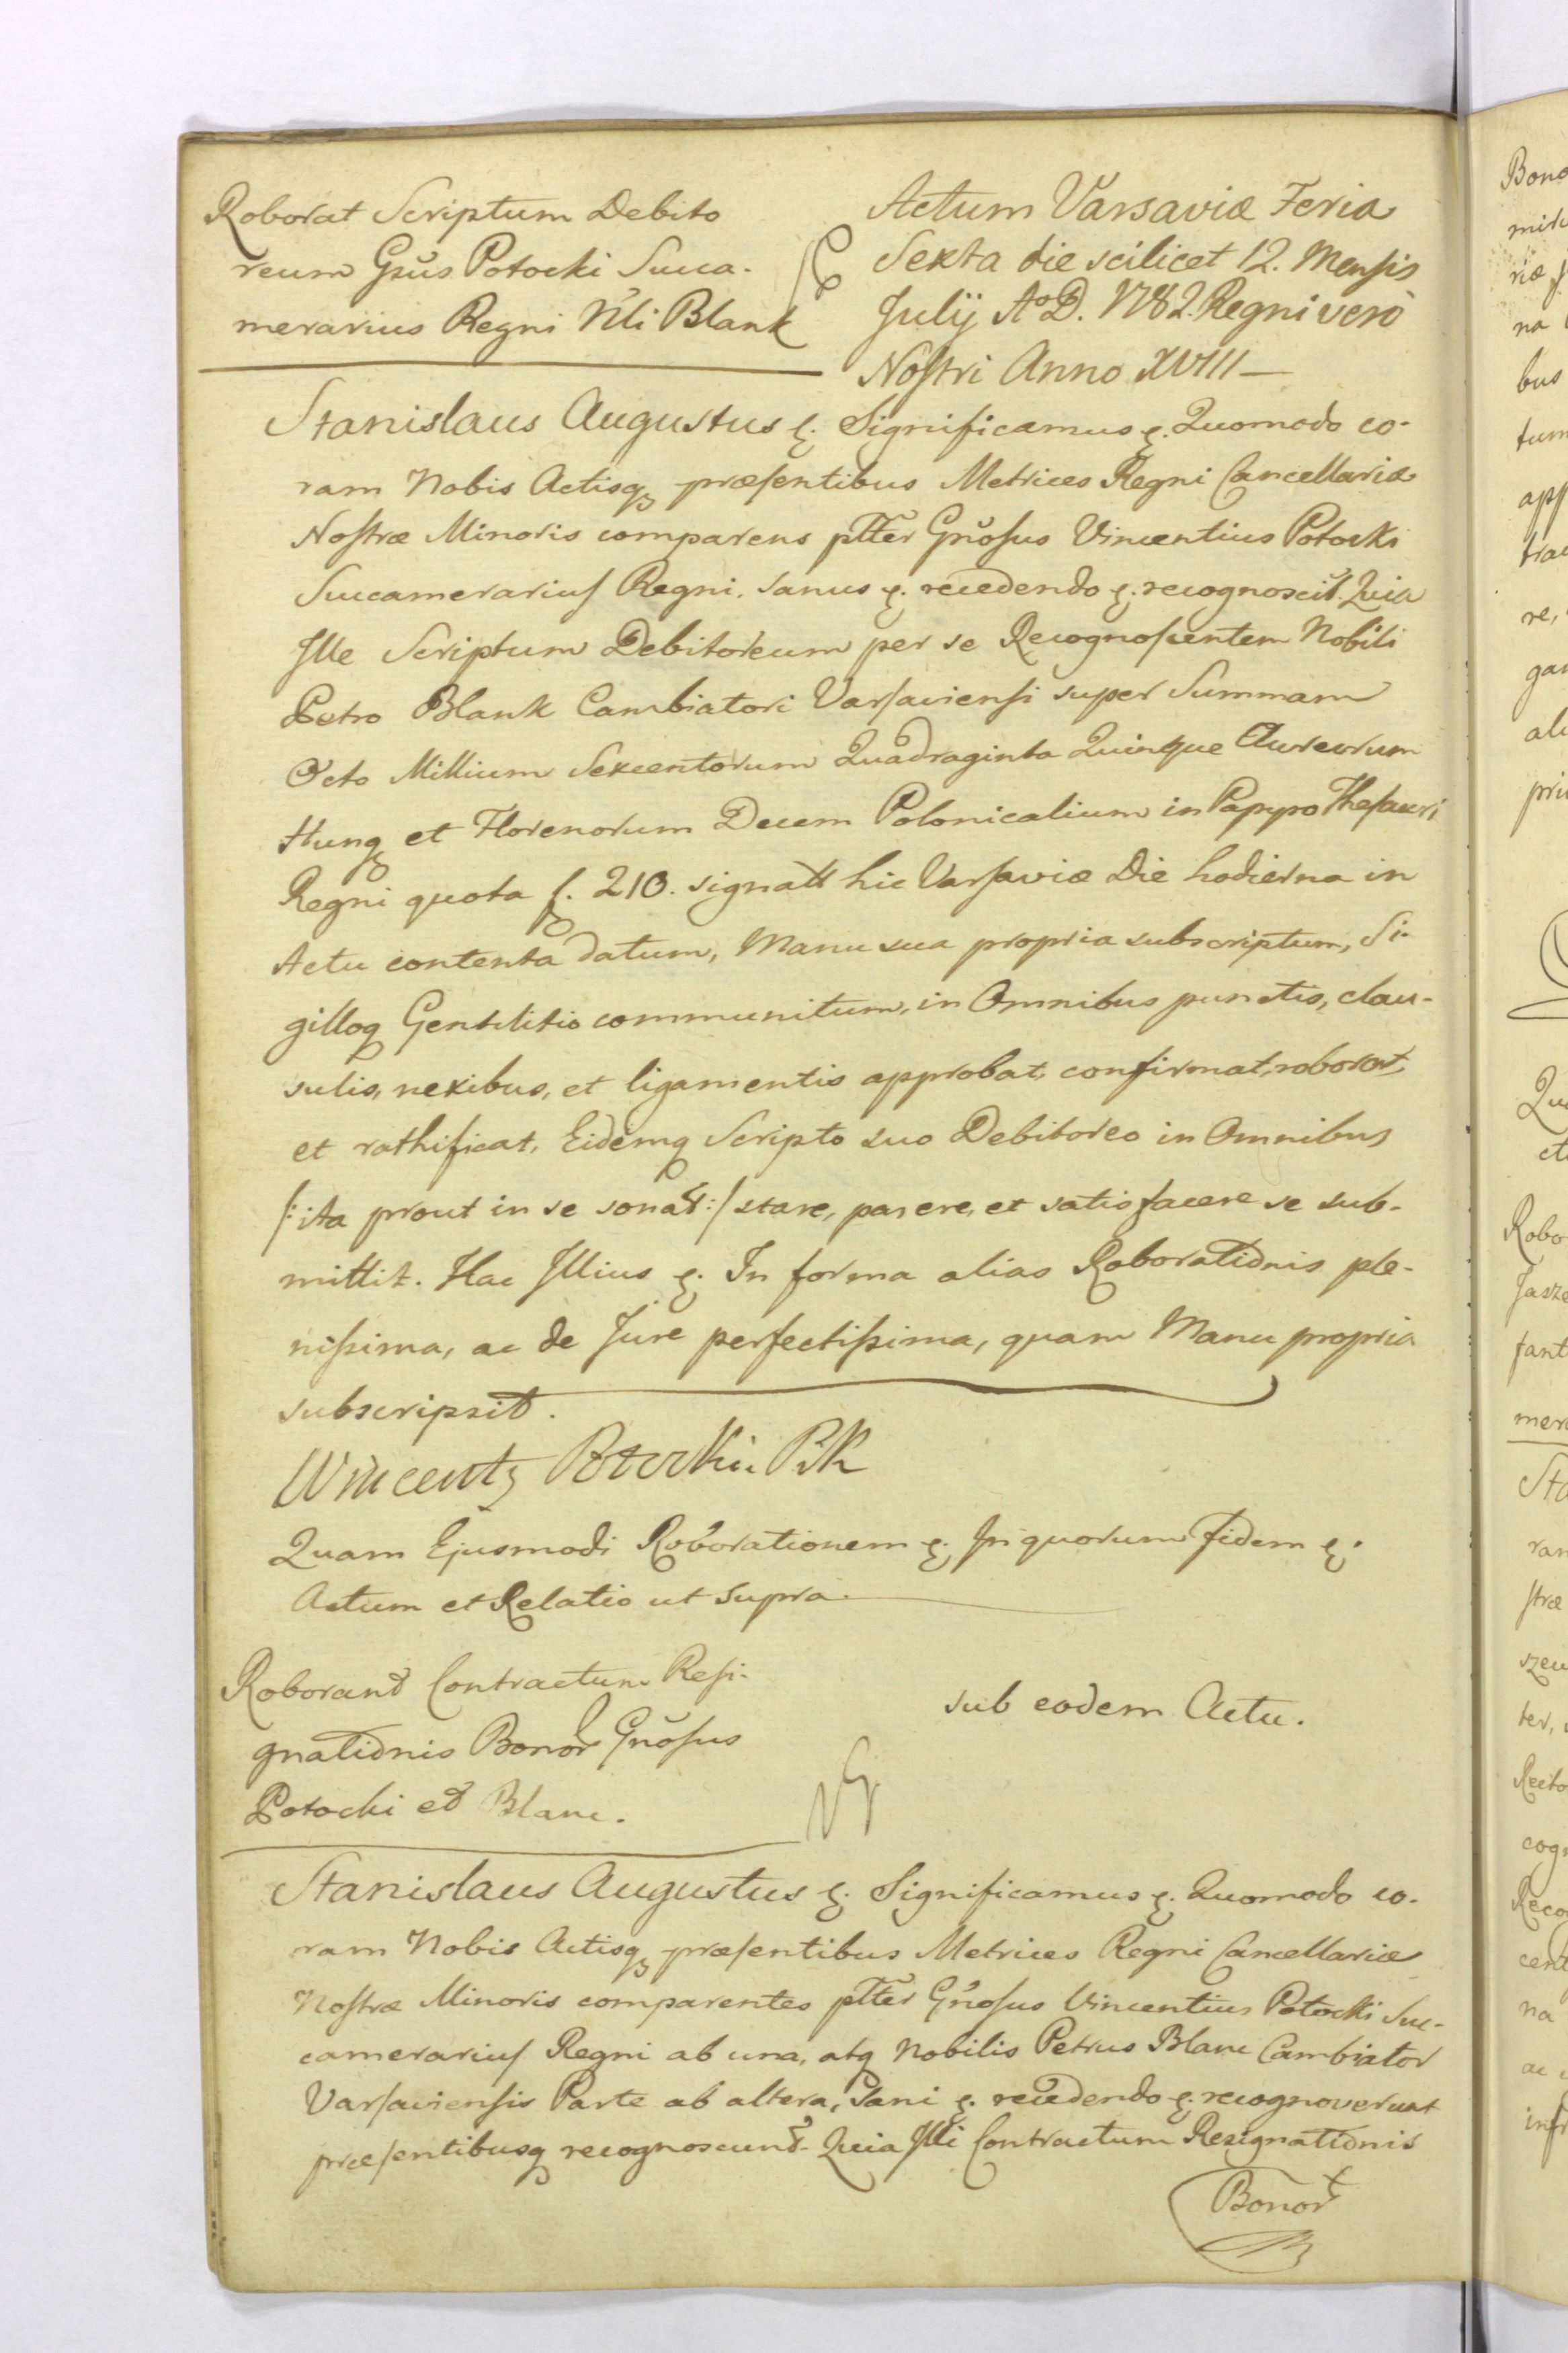 Roborat Scriptum Debito
reum Gsus Potocki Succa-
merarius Regni Nli Blank
Actum Varsaviæ Feria
Sexta die scilicet 12. Mensis
July Ao D. 1782. Regni verò
Nostri Anno XVIII —
Stanislaus Augustus &. Significamus &. Quomodo co-
ram Nobis Actisq præsentibus Metrices Regni Cancellariæ
Nostræ Minoris comparens pltter Gnosus Vincentius Potocki
Succamerarius Regni. sanus &. recedendo &. recognoscit. Quia
Ille Scriptum Debitoreum per se Recognoscentem Nobili
Petro Blank Cambiatori Varsaviensi super Summam
Octo Millium Sexcentorum Quadraginta Quinque Aureorum
Hung et Florenorum Decem Polonicalium in Papyro Thesauri
Regni quota f. 210. signatt hic Varsaviæ Die hodierna in
Actu contenta datum, Manu sua propria subscriptum, Si-
gilloq Gentilitio communitum, in Omnibus punctis, clau-
sulis, nexibus, et ligamentis approbat, confirmat, roborat,
et rathificat, Eidemq Scripto suo Debitoreo in Omnibus
/: ita prout in se sonat :/ stare, parere, et satisfacere se sub-
mittit. Hac Illius &. In forma alias Roborationis ple-
nissima, ac de Jure perfectissima, quam Manu propria
subscripsit.
Wincenty Potocki PK
Quam Ejusmodi Roborationem &. In quorum fidem &.
Actum et Relatio ut Supra.
Roborant Contractum Resi-
gnationis Bonor Gnosus
Potocki et Blanc.
sub eodem Actu.
Stanislaus Augustus &. Significamus &. Quomodo co-
ram Nobis Actisq præsentibus Metrices Regni Cancellariæ
Nostræ Minoris comparentes pltter Gnosus Vincentius Potocki Suc-
camerarius Regni ab una, atq Nobilis Petrus Blanc Cambiator
Varsaviensis Parte ab altera, Sani &. recedendo &. recognoverunt
præsentibusq recognoscunt. Quia Illi Contractum Resignationis
Bonor